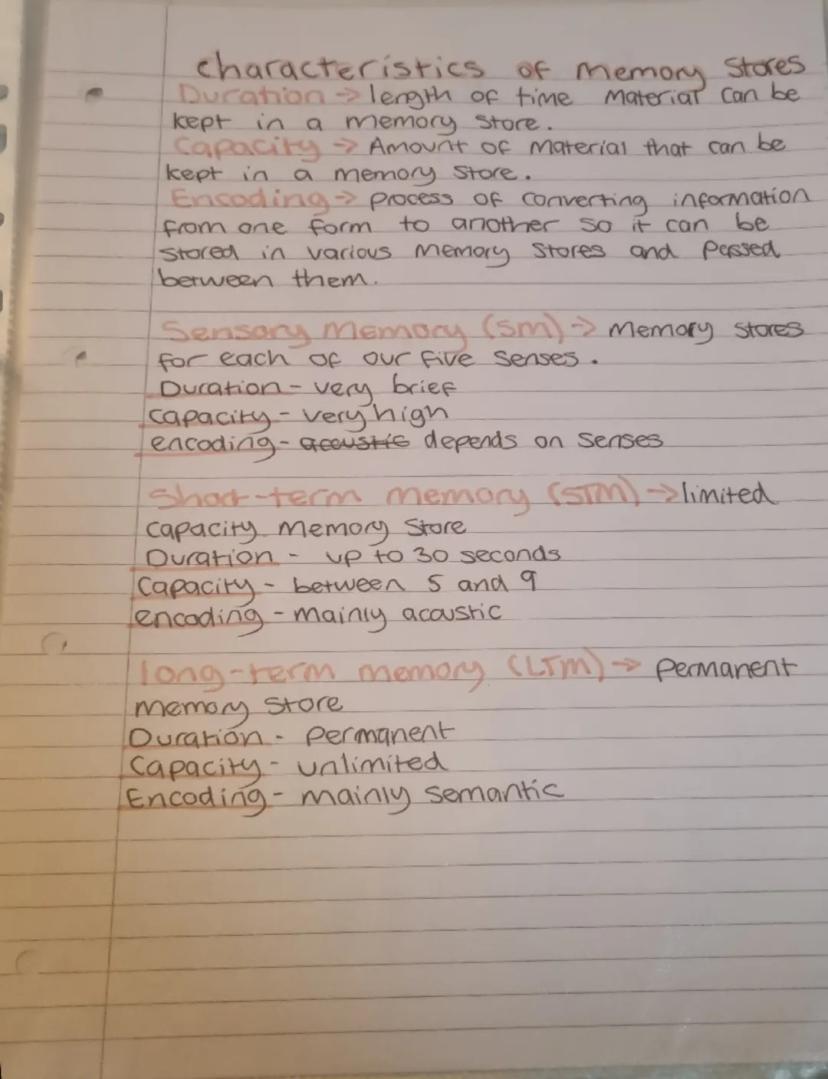 characteristics of memory stores
Duration → length of time material can be
kept in a memory store.
Capacity → Amount of material that can be
kept in a memory store.
Encoding → process of converting information
from one form to another so it can be
stored in various memory stores and passed
between them.
Sensory memory (SM) → memory stores
for each of our five senses.
Duration - very brief
capacity - very high
encoding - acoustic depends on senses
Short-term memory (STM) → limited
capacity memory store
Duration - up to 30 seconds
Capacity - between 5 and 9
encoding - mainly acoustic
long-term memory (LTM) → permanent
memory store
Duration - permanent
Capacity - unlimited
Encoding - mainly semantic